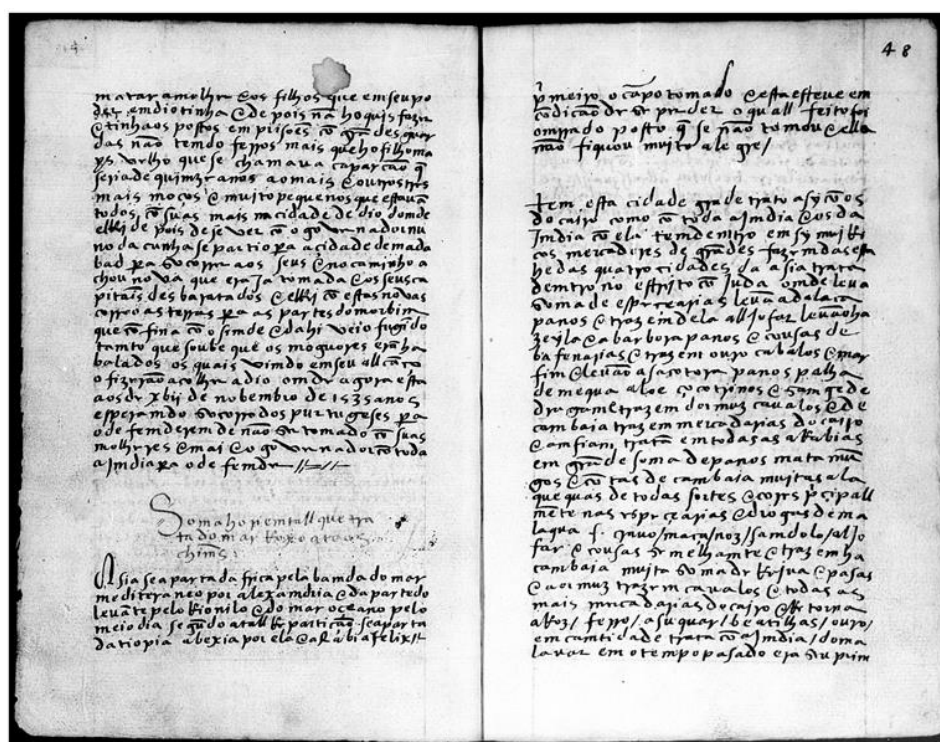 matar a molher & os filhos que em seu po
der em dio tinha & depois nã ho quis fazer
& tinha os postos em prisões cõ grãdes guar
das não temdo ferros mais que ho filho ma
ys velho que se chamava
seria de quimze anos ao mais & outros tres
mais moços & muito pequenos que estavã
todos cõ suas mais na cidade de dio domde
elRei depois de se ver cõ o governador nu
no da cunha se partio pera a cidade de mada
bad pera socorrer aos seus & no caminho a
chou nova que era ja tomada & os seus ca
pitais desbaratados & elRei cõ estas novas
correo as terras pera as partes do
que cõfina cõ o simde & dahi veio fugido
tamto que soube que os mogores erã
balados os quais vimdo em seu allcãço
o fizerão acolher a dio omde agora esta
aos de xbij de novembro de 1535 anos
esperamdo socorro dos purtugeses pera
o defemderem de não ser tomado cõ suas
molheres & mai & o governador cõ toda
a imdia pera o defemder
Soma horiemtall que tra
ta do mar Roxo ate os
chims
Asia se aparta dafrica pela bamda do mar
mediteraneo por alexamdria & da parte do
levãte pelo Rio nilo & do mar oceano pelo
meio dia segũdo atall Repartiçã se aparta
da tiopia abexia por ela & arabia felix
48
primeiro o capo tomado & esta esteve em
cõdiçã de se perder o quall feito foi
omrrado posto que se não tomou & ella
não fiquou muito alegre
Tem esta cidade grãde trato asy cõ os
do cairo como cõ toda a Imdia & os da
Imdia cõ ela tem demtro em sy mui Ri
cos mercadores de grãdes fazemdas esta
he das quatro cidades da asia trata
demtro no estrito cõ Juda omde leva
soma de espeçearias leva a dalaca
panos & traz em dela alljofar levão ha
zeyla & a barbora panos & cousas de
bafenarias & trazem ouro cavalos & mar
fim & levão a sacotora panos palha
de mequa aloe çocotrinos & sangue de
dragam trazem dormuz cavalos & de
cambaia trazem mercadarias do cairo
& amfiam tratã em todas as arabias
em grãde soma de panos
& cõtas de cambaia muitas ala
quequas de todas sortes & cores prĩcipall
mẽte nas espeçearias & drogas de ma
laqua s. cravo/maça/noz/samdolo/aljo
far & cousas semelhamtes & trazem ha
cambaia muita soma de & pasas
& a ormuz trazem cavalos & todas as
mais mercadarias do cairo & Retorna
aRoz/ ferro/ asuquar/ beatilhas/ ouro/
em camtidade trata cõ a Imdia/ do ma
lavar em o tempo pasado era seu prim